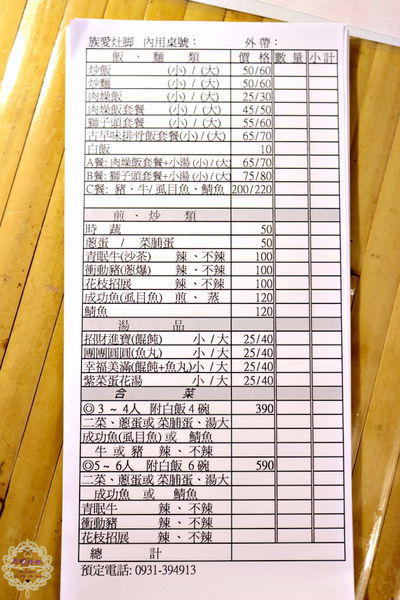 族愛灶脚 內用桌號： 外帶：
飯、麵類 價格 數量 小計
炒飯 (小)/(大) 50/60
炒麵 (小)/(大) 50/60
肉燥飯 (小)/(大) 25/30
肉燥飯套餐 (小)/(大) 45/50
獅子頭套餐 (小)/(大) 55/60
古早味排骨飯套餐(小)/(大) 65/70
白飯 10
A餐: 肉燥飯套餐+小湯 (小)/(大) 65/70
B餐: 獅子頭套餐+小湯 (小)/(大) 75/80
C餐: 豬、牛/虱目魚、鯖魚 200/220
煎、炒類
時蔬 50
蔥蛋 / 菜脯蛋 50
青眠牛(沙茶) 辣、不辣 100
衝動豬(蔥爆) 辣、不辣 100
花枝招展 辣、不辣 100
成功魚(虱目魚) 煎、蒸 120
鯖魚 120
湯品
招財進寶(餛飩) 小/大 25/40
團團圓圓(魚丸) 小/大 25/40
幸福美滿(餛飩+魚丸)小/大 25/40
紫菜蛋花湯 小/大 25/40
合菜
◎3~4人 附白飯4碗 390
二菜、蔥蛋或菜脯蛋、湯大
成功魚(虱目魚)或 鯖魚
牛或豬 辣、不辣
◎5~6人 附白飯6碗 590
二菜、蔥蛋或菜脯蛋、湯大
成功魚 或 鯖魚
青眠牛 辣、不辣
衝動豬 辣、不辣
花枝招展 辣、不辣
總計
預定電話: 0931-394913